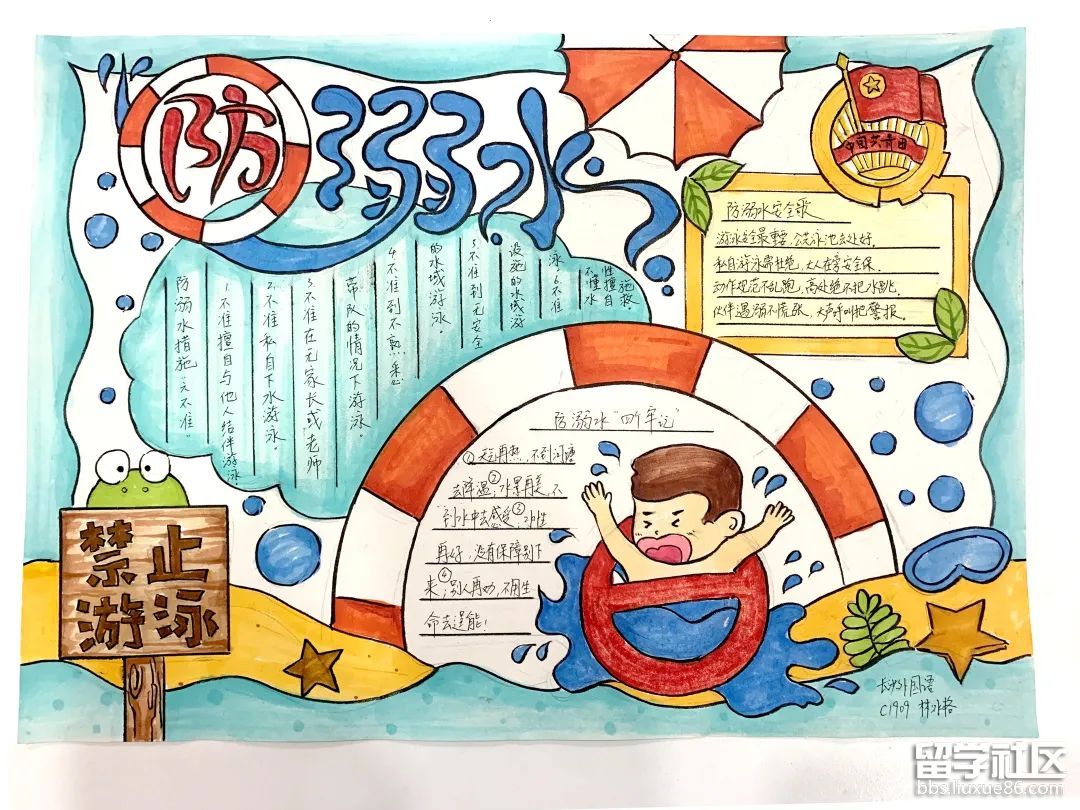 防溺水
中国共青团
防溺水安全歌
游泳安全最重要，公共泳池去处好。
私自游泳需杜绝，大人在旁安全保。
动作规范不乱跑，高处绝不把水跳。
伙伴遇溺不慌张，大声呼叫把警报。
防溺水措施"六不准"
1.不准擅自与他人结伴游泳
2.不准私自下水游泳。
3.不准在无家长或老师
带队的情况下游泳。
4.不准到不熟悉
的水域游泳。
5.不准到无安全
设施的水域游
泳 6.不准
不懂水
性擅自
施救。
防溺水"四个牢记"
①天再热，不到河塘
去降温；②水景再美，不
到水中去感受；③水性
再好，没有保障别下
来；④别人再劝，不用生
命去逞能！
禁止
游泳
长沙外国语
C1909
留学社区
bbs.liuxue86.com